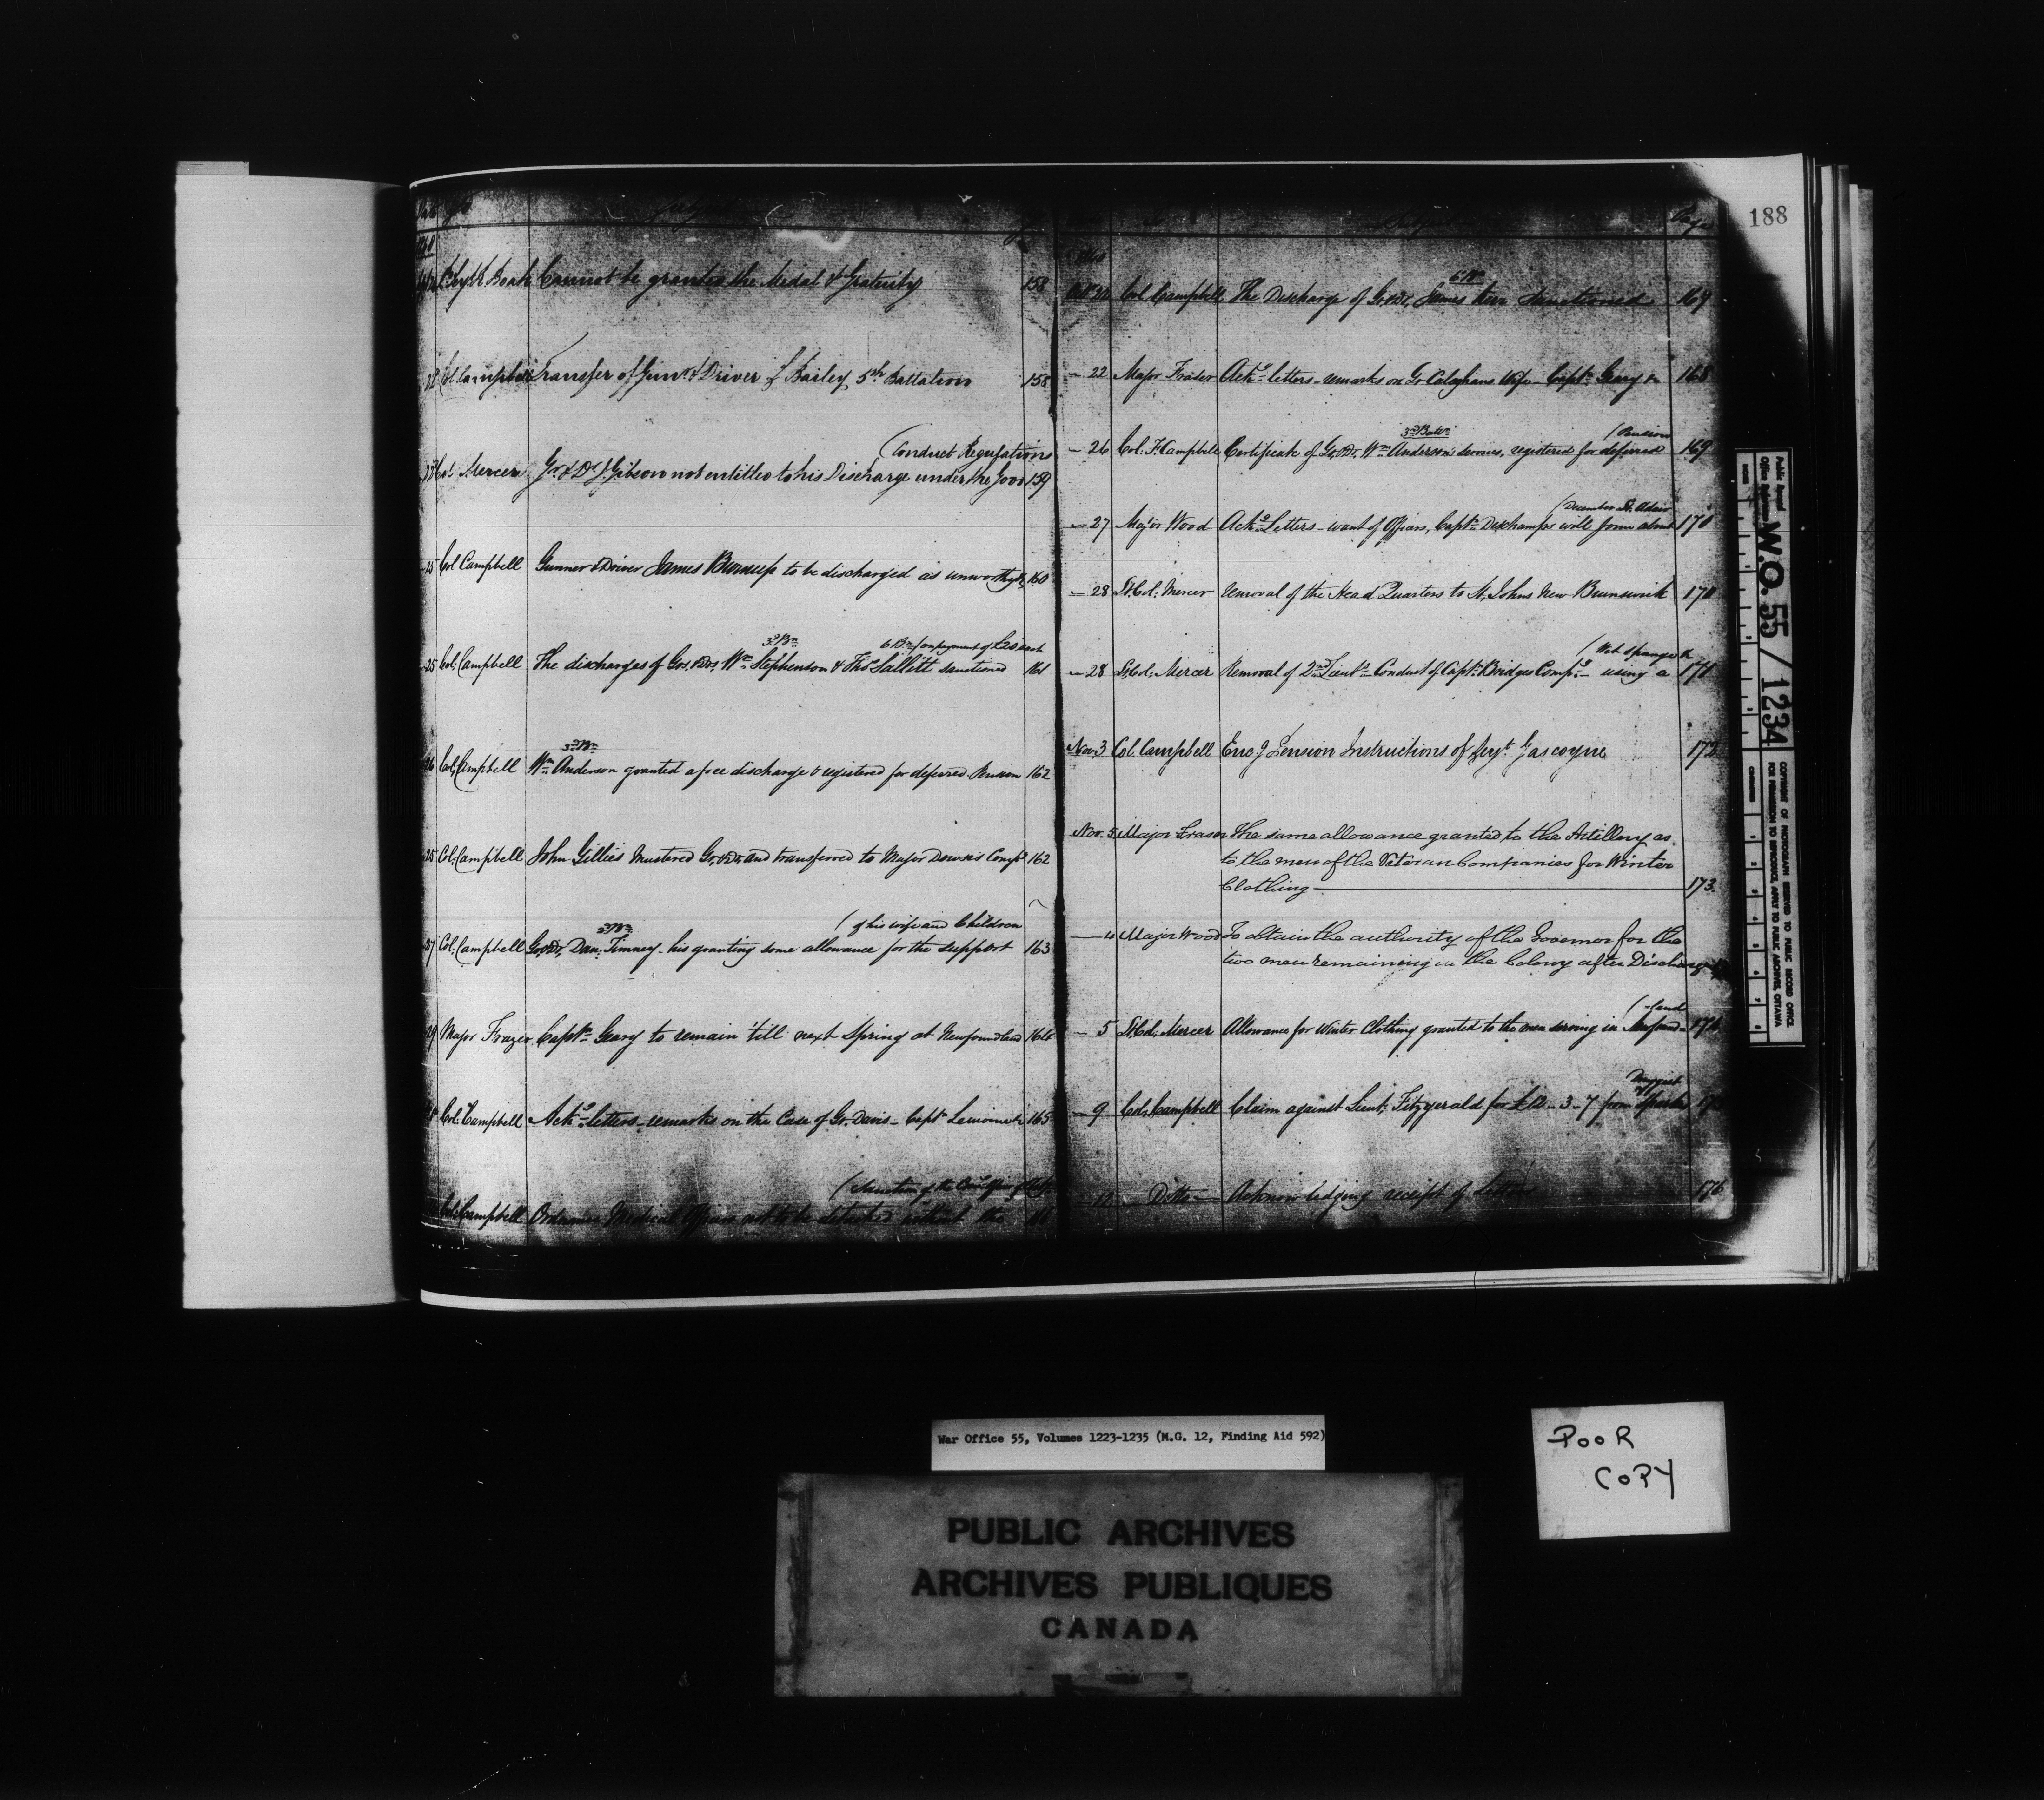 188
Cannot be granted the Medal & Gratuity 158
Col Campbell Transfer of Gunr & Driver J Bailey, 5th Battalion 158
(Conduct Regulations
Mercer Gr. & Dr. J. Gibson not entitled to his Discharge under the Good 159
25 Col Campbell Gunner & Driver James to be discharged as unworthy & 160
3d Bn 6 Bn (on payment of £20 each
25 Col. Campbell The discharges of Grs. & Drs. Wm Stephenson & Thos Sallitt sanctioned 161
3d Bn
26 Col. Campbell Wm Anderson granted a free discharge & registered for deferred Pension 162
25 Col. Campbell John Gillies Mustered Gr. & Dr. and transferred to Major Dowse's Compy 162
(of his wife and Children
27 Col. Campbell Gr. & Dr. Dan. Timney - his granting some allowance for the support 163
29 Major Frazer Captn Geary to remain 'till next Spring at Newfoundland 164
Col. Campbell Ackg letters - remarks on the Case of Gr. Davis - Captn 165
(Sanction of the
Col. Campbell Ordnance Medical Officers not to be detached without the
Page
6 Bn
Col. Campbell The Discharge of Gr. & Dr. James Kerr sanctioned 169
- 22 Major Frazer Ackg letters - remarks on Gr Calaghans Wife - Captn Geary &c 168
3d Battn (Pension
- 26 Col. F. Campbell Certificate of Gr. & Dr. Wm Anderson's services, registered for deferred 169
(December Dr. Adair
- 27 Major Wood Ackg Letters - want of Officers, Captn Deschamps will join about 170
- 28 Lt. Col. Mercer removal of the Head Quarters to St. Johns New Brunswick 170
(Wet Spunge &c
- 28 Lt. Col. Mercer Removal of 2nd Lieuts - Conduct of Captn Bridges Compy - using a 171
Nov. 3 Col. Campbell Encg Pension Instructions of Serjt Gascoyne 172
Nov. 5 Major Fraser The same allowance granted to the Artillery as
to the men of the Veteran Companies for Winter
Clothing 173
4 Major Wood To obtain the authority of the Governor for the
two men remaining in the Colony after Discharge
(-land
- 5 Lt. Col. Mercer Allowance for Winter Clothing granted to the men serving in Newfound- 174
Druggist
- 9 Col. Campbell Claim against Lieut. Fitzgerald for £12 - 3 - 7 from
- 12 - Ditto - Acknowledging receipt of Letters 176
Public Record Office
Reference
W.O. 55 / 1234
COPYRIGHT OF PHOTOGRAPH RESERVED TO PUBLIC RECORD OFFICE
FOR PERMISSION TO REPRODUCE, APPLY TO PUBLIC ARCHIVES, OTTAWA
War Office 55, Volumes 1223-1235 (M.G. 12, Finding Aid 592)
POOR
COPY
PUBLIC ARCHIVES
ARCHIVES PUBLIQUES
CANADA